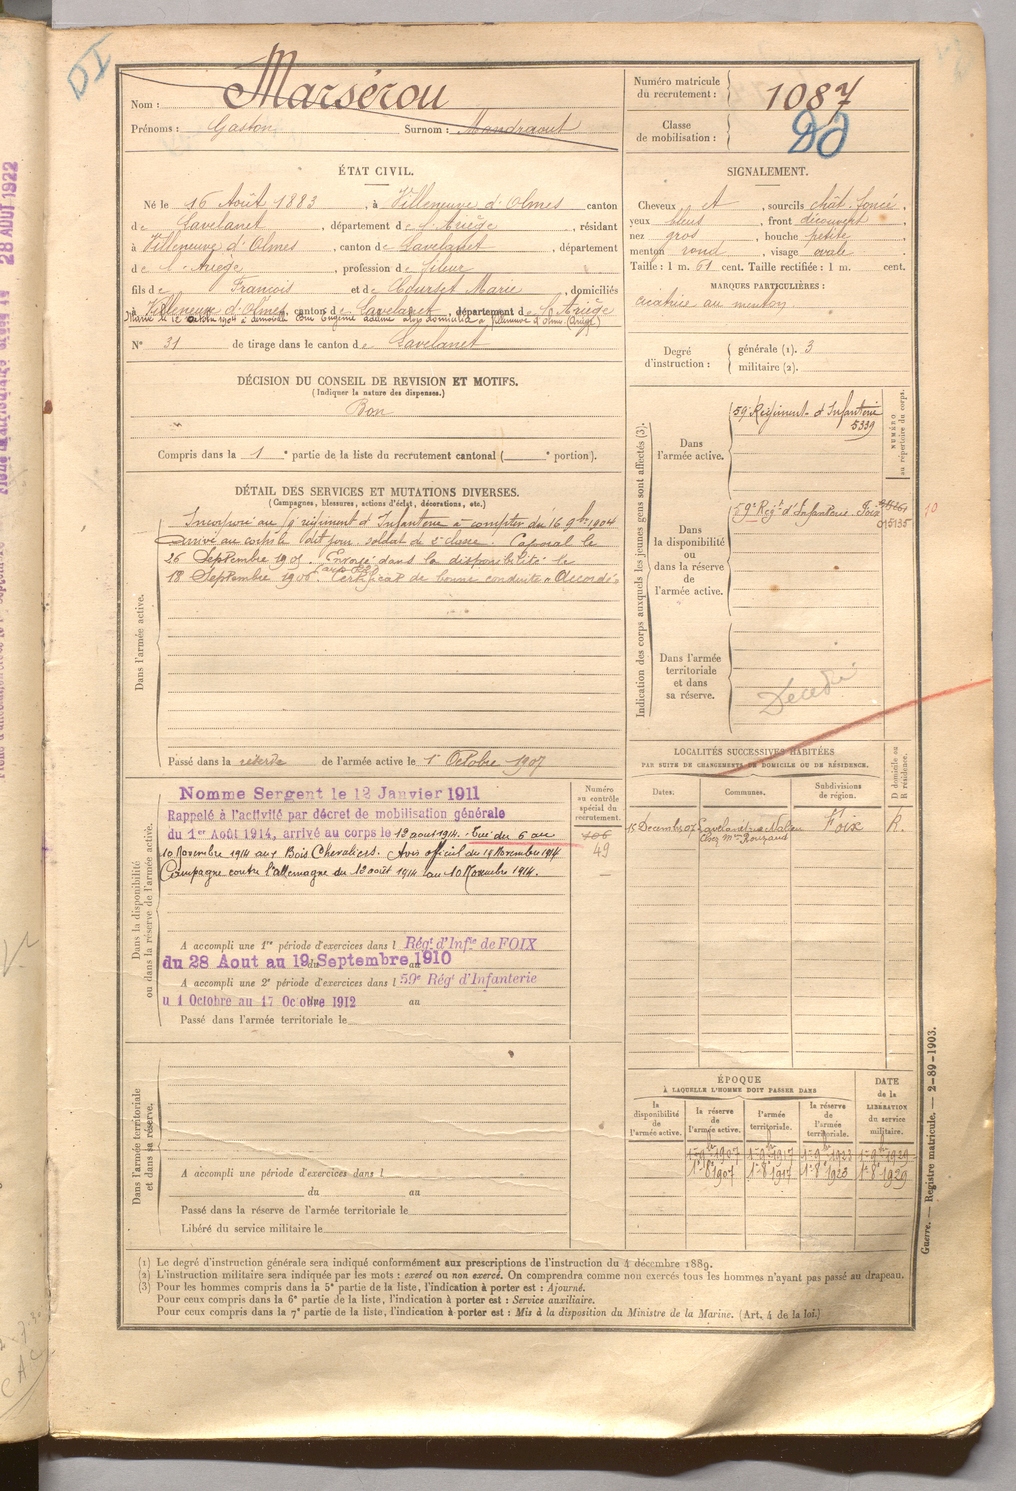 DI
Nom : Marsérou
Prénoms : Gaston Surnom : Mandraout
Numéro matricule du recrutement : 1087
Classe de mobilisation :
ÉTAT CIVIL.
Né le 16 Août 1883, à Villeneuve d'Olmes canton
de Lavelanet, département de l'Ariège, résidant
à Villeneuve d'Olmes, canton de Lavelanet, département
de l'Ariège, profession de fileur
fils de François et de Courset Marie, domiciliés
à Villeneuve d'Olmes, canton de Lavelanet, département de l'Ariège
Marié le 12 octobre 1904 à demoiselle Eugénie domicilié à Villeneuve d'Olmes (Ariège)
N° 31 de tirage dans le canton de Lavelanet
SIGNALEMENT.
Cheveux et, sourcils chât. foncé,
yeux bleus, front découvert
nez gros, bouche petite,
menton rond, visage ovale
Taille : 1 m. 61 cent. Taille rectifiée : 1 m. cent.
MARQUES PARTICULIÈRES :
cicatrice au menton
Degré d'instruction : générale (1). 3
militaire (2).
DÉCISION DU CONSEIL DE REVISION ET MOTIFS.
(Indiquer la nature des dispenses.)
Bon
Compris dans la 1e partie de la liste du recrutement cantonal ( e portion).
DÉTAIL DES SERVICES ET MUTATIONS DIVERSES.
(Campagnes, blessures, actions d'éclat, décorations, etc.)
Dans l'armée active.
Incorporé au 9e régiment d'Infanterie à compter du 16 9bre 1904
Arrivé au corps le dit jour. Soldat de 2e classe. Caporal le
26 Septembre 1905. Envoyé dans la disponibilité le
18 Septembre 1906. Certificat de bonne conduite "Accordé"
Passé dans la réserve de l'armée active le 1er Octobre 1907
Indication des corps auxquels les jeunes gens sont affectés (3).
NUMÉRO au répertoire du corps.
Dans l'armée active.
59e Régiment d'Infanterie
5339
Dans la disponibilité ou dans la réserve de l'armée active.
59e Régt d'Infanterie Foix
015135
10
Dans l'armée territoriale et dans sa réserve.
Décédé
Dans la disponibilité ou dans la réserve de l'armée active.
Numéro au contrôle spécial du recrutement.
106
49
Nommé Sergent le 12 Janvier 1911
Rappelé à l'activité par décret de mobilisation générale
du 1er Août 1914, arrivé au corps le 12 août 1914. Tué du 6 au
10 Novembre 1914 aux Bois Chevaliers. Avis officiel du 18 Novembre 1914
Campagne contre l'allemagne du 12 août 1914 au 10 Novembre 1914.
A accompli une 1re période d'exercices dans l Régt d'Infie de FOIX
du 28 Aout au 19 Septembre 1910
A accompli une 2e période d'exercices dans l 59e Régt d'Infanterie
u 1 Octobre au 17 Octobre 1912 au
Passé dans l'armée territoriale le
LOCALITÉS SUCCESSIVES HABITÉES
PAR SUITE DE CHANGEMENTS DE DOMICILE OU DE RÉSIDENCE.
Dates. Communes. Subdivisions de région. D domicile ou R résidence.
15 Décembre 07 Lavelanet Foix R.
Chez Mme Rouzaud
ÉPOQUE
À LAQUELLE L'HOMME DOIT PASSER DANS
DATE de la LIBÉRATION du service militaire.
la disponibilité de l'armée active. la réserve de l'armée active. l'armée territoriale. la réserve de l'armée territoriale.
1er 9bre 1907 1er 9bre 1917 1er 9bre 1923 1er 9bre 1929
1er 8bre 1907 1er 8bre 1917 1er 8bre 1923 1er 8bre 1929
Dans l'armée territoriale et dans sa réserve.
A accompli une période d'exercices dans l
du au
Passé dans la réserve de l'armée territoriale le
Libéré du service militaire le
(1) Le degré d'instruction générale sera indiqué conformément aux prescriptions de l'instruction du 4 décembre 1889.
(2) L'instruction militaire sera indiquée par les mots : exercé ou non exercé. On comprendra comme non exercés tous les hommes n'ayant pas passé au drapeau.
(3) Pour les hommes compris dans la 5e partie de la liste, l'indication à porter est : Ajourné.
Pour ceux compris dans la 6e partie de la liste, l'indication à porter est : Service auxiliaire.
Pour ceux compris dans la 7e partie de la liste, l'indication à porter est : Mis à la disposition du Ministre de la Marine. (Art. 4 de la loi.)
Guerre. — Registre matricule. — 2-89-1903.
28 AOUT 1922